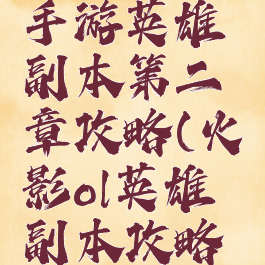 手游英雄
副本第二
章攻略(火
影ol英雄
副本攻略